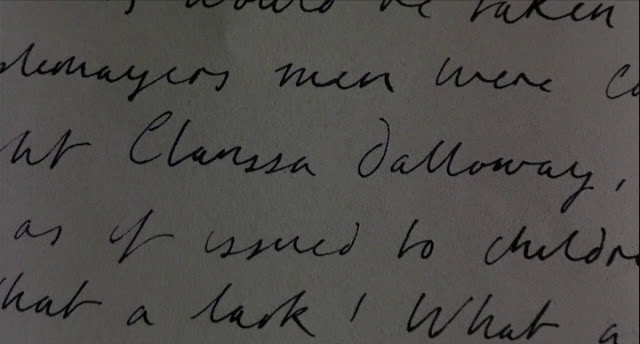 would be taken
men were
Clarissa Dalloway,
as if issued to childre
hat a lark! What a